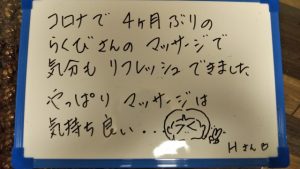 コロナで 4ヶ月ぶりの
らくびさんの マッサージで
気分も リフレッシュ できました
やっぱり マッサージは
気持ち良い・・・
Hさん